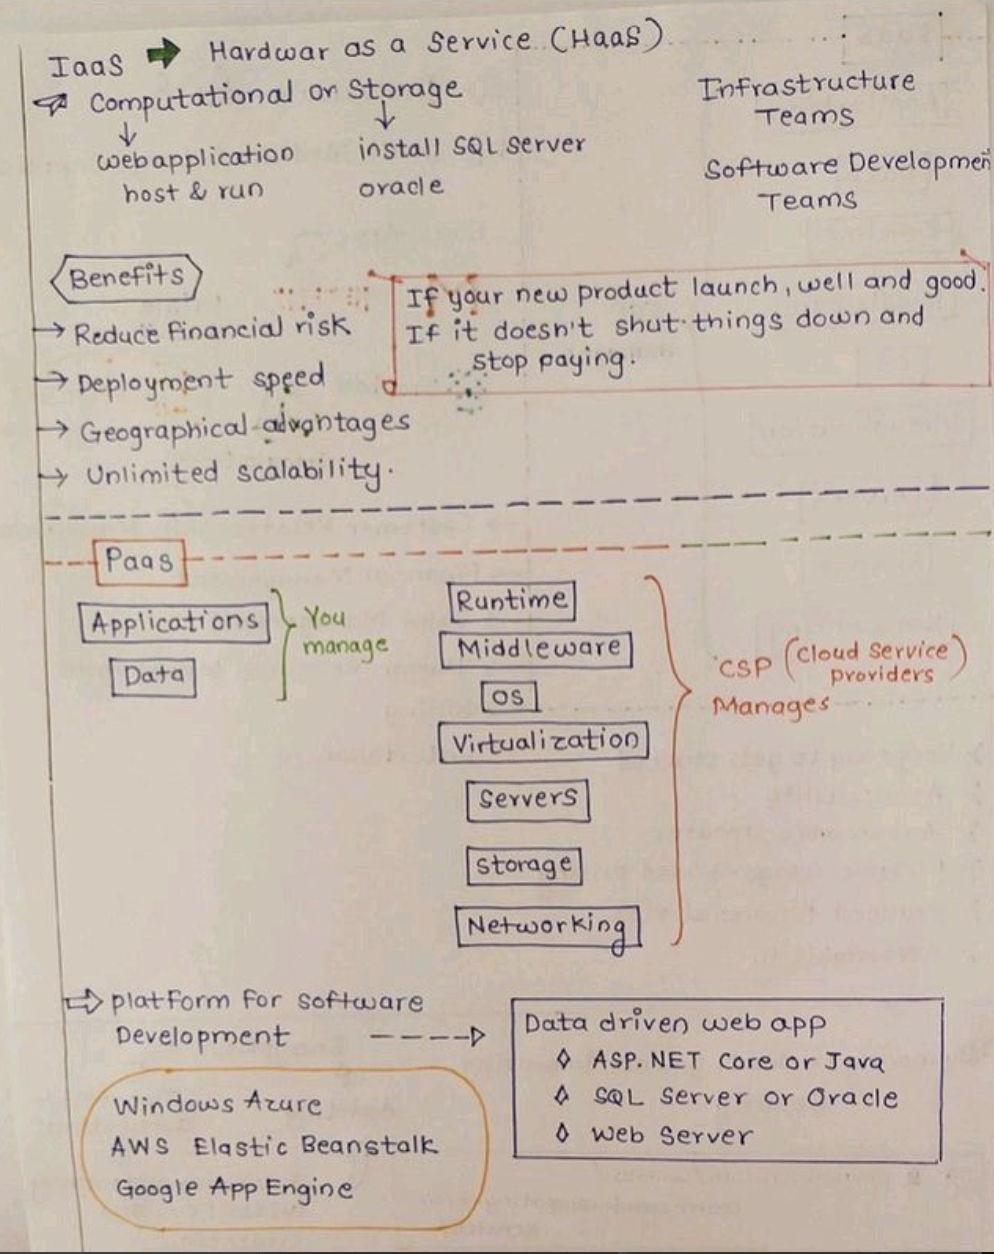 IaaS ➡ Hardwar as a Service (HaaS)
Computational or Storage
↓ ↓
webapplication
host & run
install SQL Server
oracle
Infrastructure
Teams
Software Developmen
Teams
Benefits
→ Reduce financial risk
→ Deployment speed
→ Geographical advantages
→ Unlimited scalability.
If your new product launch, well and good.
If it doesn't shut things down and
stop paying.
Paas
Applications
Data
You
manage
Runtime
Middleware
OS
Virtualization
Servers
Storage
Networking
CSP (Cloud Service
providers)
Manages
⇒ platform for software
Development ----▷
Windows Azure
AWS Elastic Beanstalk
Google App Engine
Data driven web app
◊ ASP.NET Core or Java
◊ SQL Server or Oracle
◊ Web Server